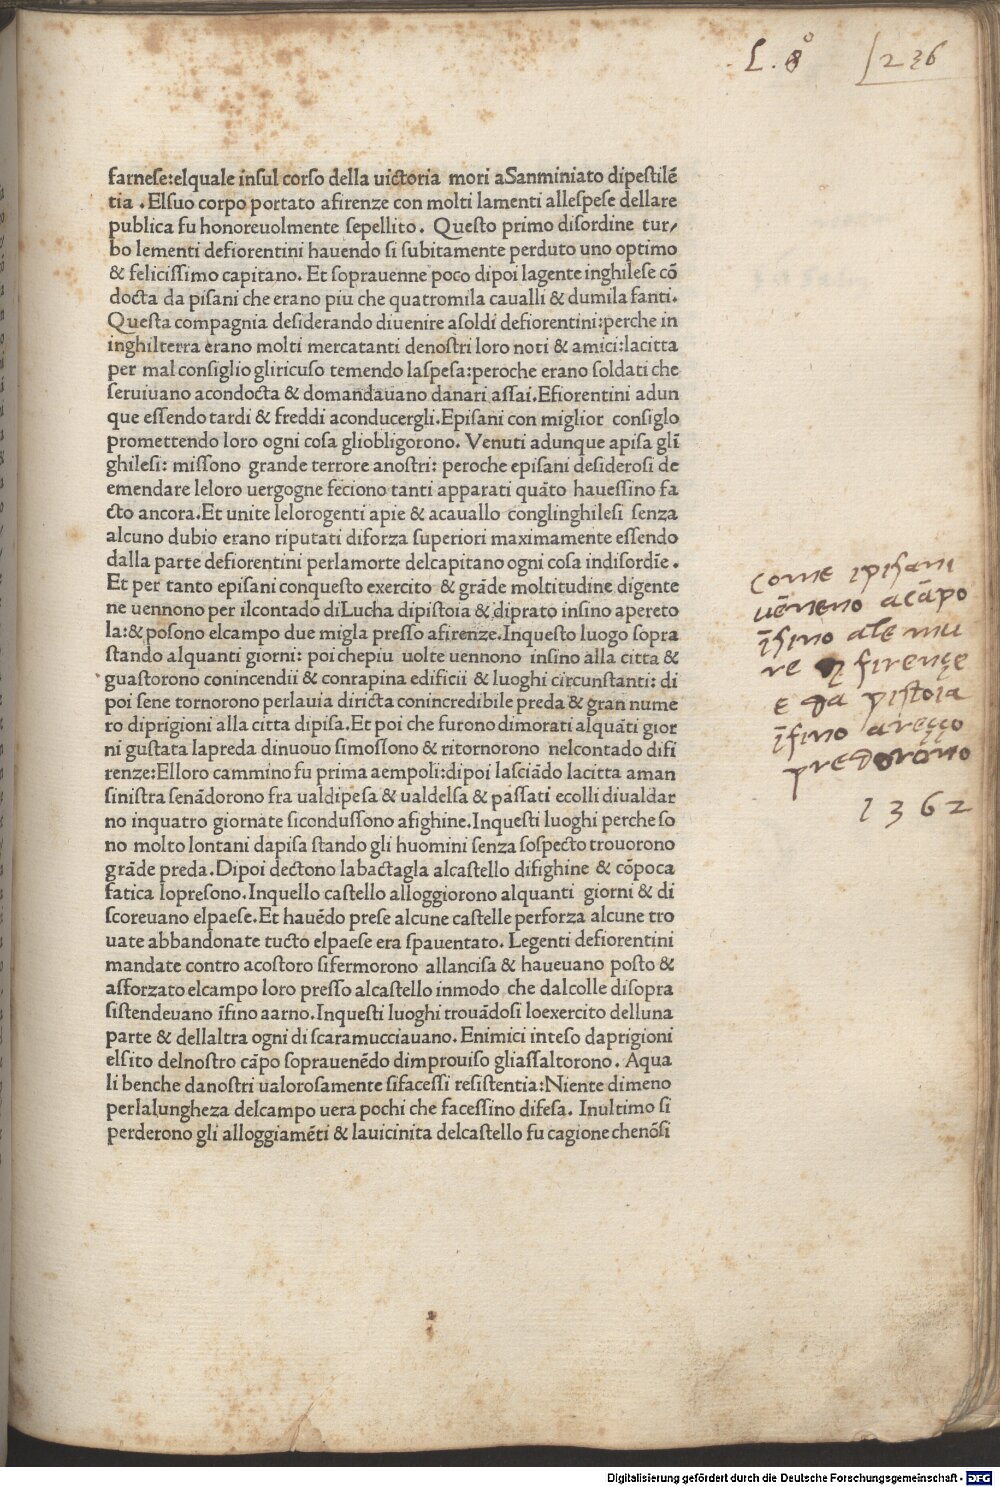 L. 8° 236
farnese:elquale insul corso della uictoria mori aSanminiato dipestilē
tia . Elsuo corpo portato afirenze con molti lamenti allespese dellare
publica fu honoreuolmente sepellito . Questo primo disordine tur/
bo lementi defiorentini hauendo si subitamente perduto uno optimo
& felicissimo capitano. Et soprauenne poco dipoi lagente inghilese cō
docta da pisani che erano piu che quatromila caualli & dumila fanti.
Questa compagnia desiderando diuenire asoldi defiorentini:perche in
inghilterra erano molti mercatanti denostri loro noti & amici:lacitta
per mal consiglio gliricuso temendo laspesa:peroche erano soldati che
seruiuano acondocta & domandauano danari assai.Efiorentini adun
que essendo tardi & freddi aconducergli.Episani con miglior consiglo
promettendo loro ogni cosa gliobligorono. Venuti adunque apisa glī
ghilesi: missono grande terrore anostri: peroche episani desiderosi de
emendare leloro uergogne feciono tanti apparati quāto hauessino fa
cto ancora.Et unite lelorogenti apie & acauallo conglinghilesi senza
alcuno dubio erano riputati diforza superiori maximamente essendo
dalla parte defiorentini perlamorte delcapitano ogni cosa indisordīe.
Et per tanto episani conquesto exercito & grāde moltitudine digente
ne uennono per ilcontado diLucha dipistoia & diprato insino apereto
la:& posono elcampo due migla presso afirenze.Inquesto luogo sopra
stando alquanti giorni: poi chepiu uolte uennono insino alla citta &
guastorono conincendii & conrapina edificii & luoghi circunstanti: di
poi sene tornorono perlauia diricta conincredibile preda & gran nume
ro diprigioni alla citta dipisa.Et poi che furono dimorati alquāti gior
ni gustata lapreda dinuouo simossono & ritornorono nelcontado difi
renze:Elloro cammino fu prima aempoli:dipoi lasciādo lacitta aman
sinistra senādorono fra ualdipesa & ualdelsa & passati ecolli diualdar
no inquatro giornate sicondussono afighine.Inquesti luoghi perche so
no molto lontani dapisa stando gli huomini senza sospecto trouorono
grāde preda.Dipoi dectono labactagla alcastello difighine & cōpoca
fatica lopresono.Inquello castello alloggiorono alquanti giorni & di
scoreuano elpaese.Et hauēdo prese alcune castelle perforza alcune tro
uate abbandonate tucto elpaese era spauentato. Legenti defiorentini
mandate contro acostoro sifermorono allancisa & haueuano posto &
asforzato elcampo loro presso alcastello inmodo che dalcolle disopra
sistendeuano īfino aarno.Inquesti luoghi trouādosi loexercito delluna
parte & dellaltra ogni di scaramucciauano. Enimici inteso daprigioni
elsito delnostro cāpo soprauenēdo dimprouiso gliassaltorono. Aqua
li benche danostri ualorosamente sifacessi resistentia:Niente dimeno
perlalungheza delcampo uera pochi che facessino difesa. Inultimo si
perderono gli alloggiamēti & lauicinita delcastello fu cagione chenōsi
come ipisani
uēneno acāpo
īsino ale mu
re firençe
e da pistoia
īfino areçço
predorono
1362
Digitalisierung gefördert durch die Deutsche Forschungsgemeinschaft - DFG